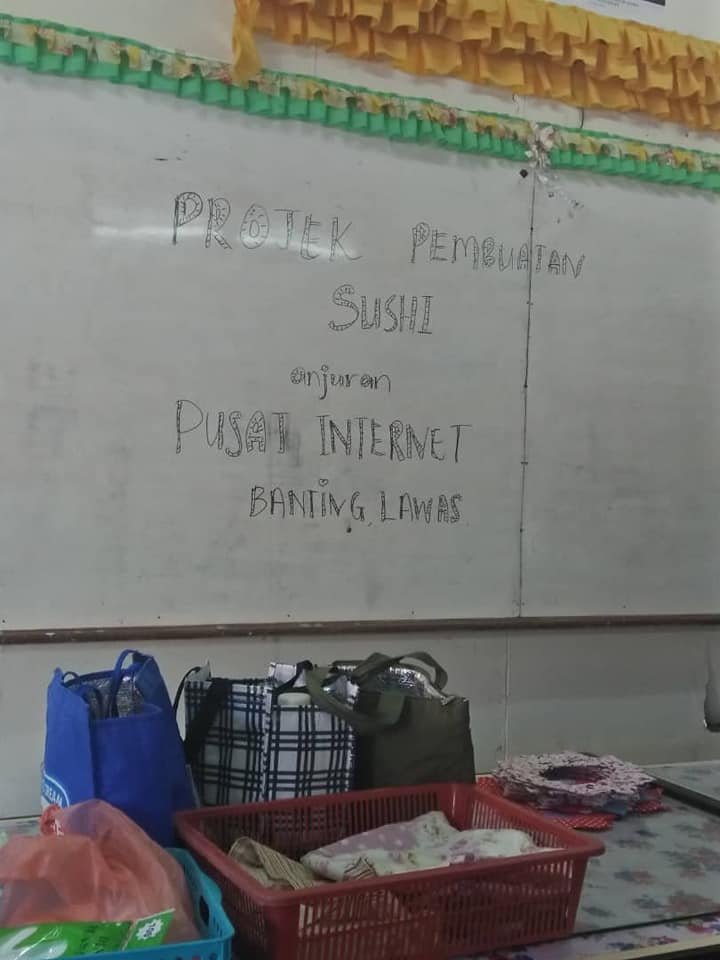 PROJEK PEMBUATAN
SUSHI
anjuran
PUSAT INTERNET
BANTING, LAWAS